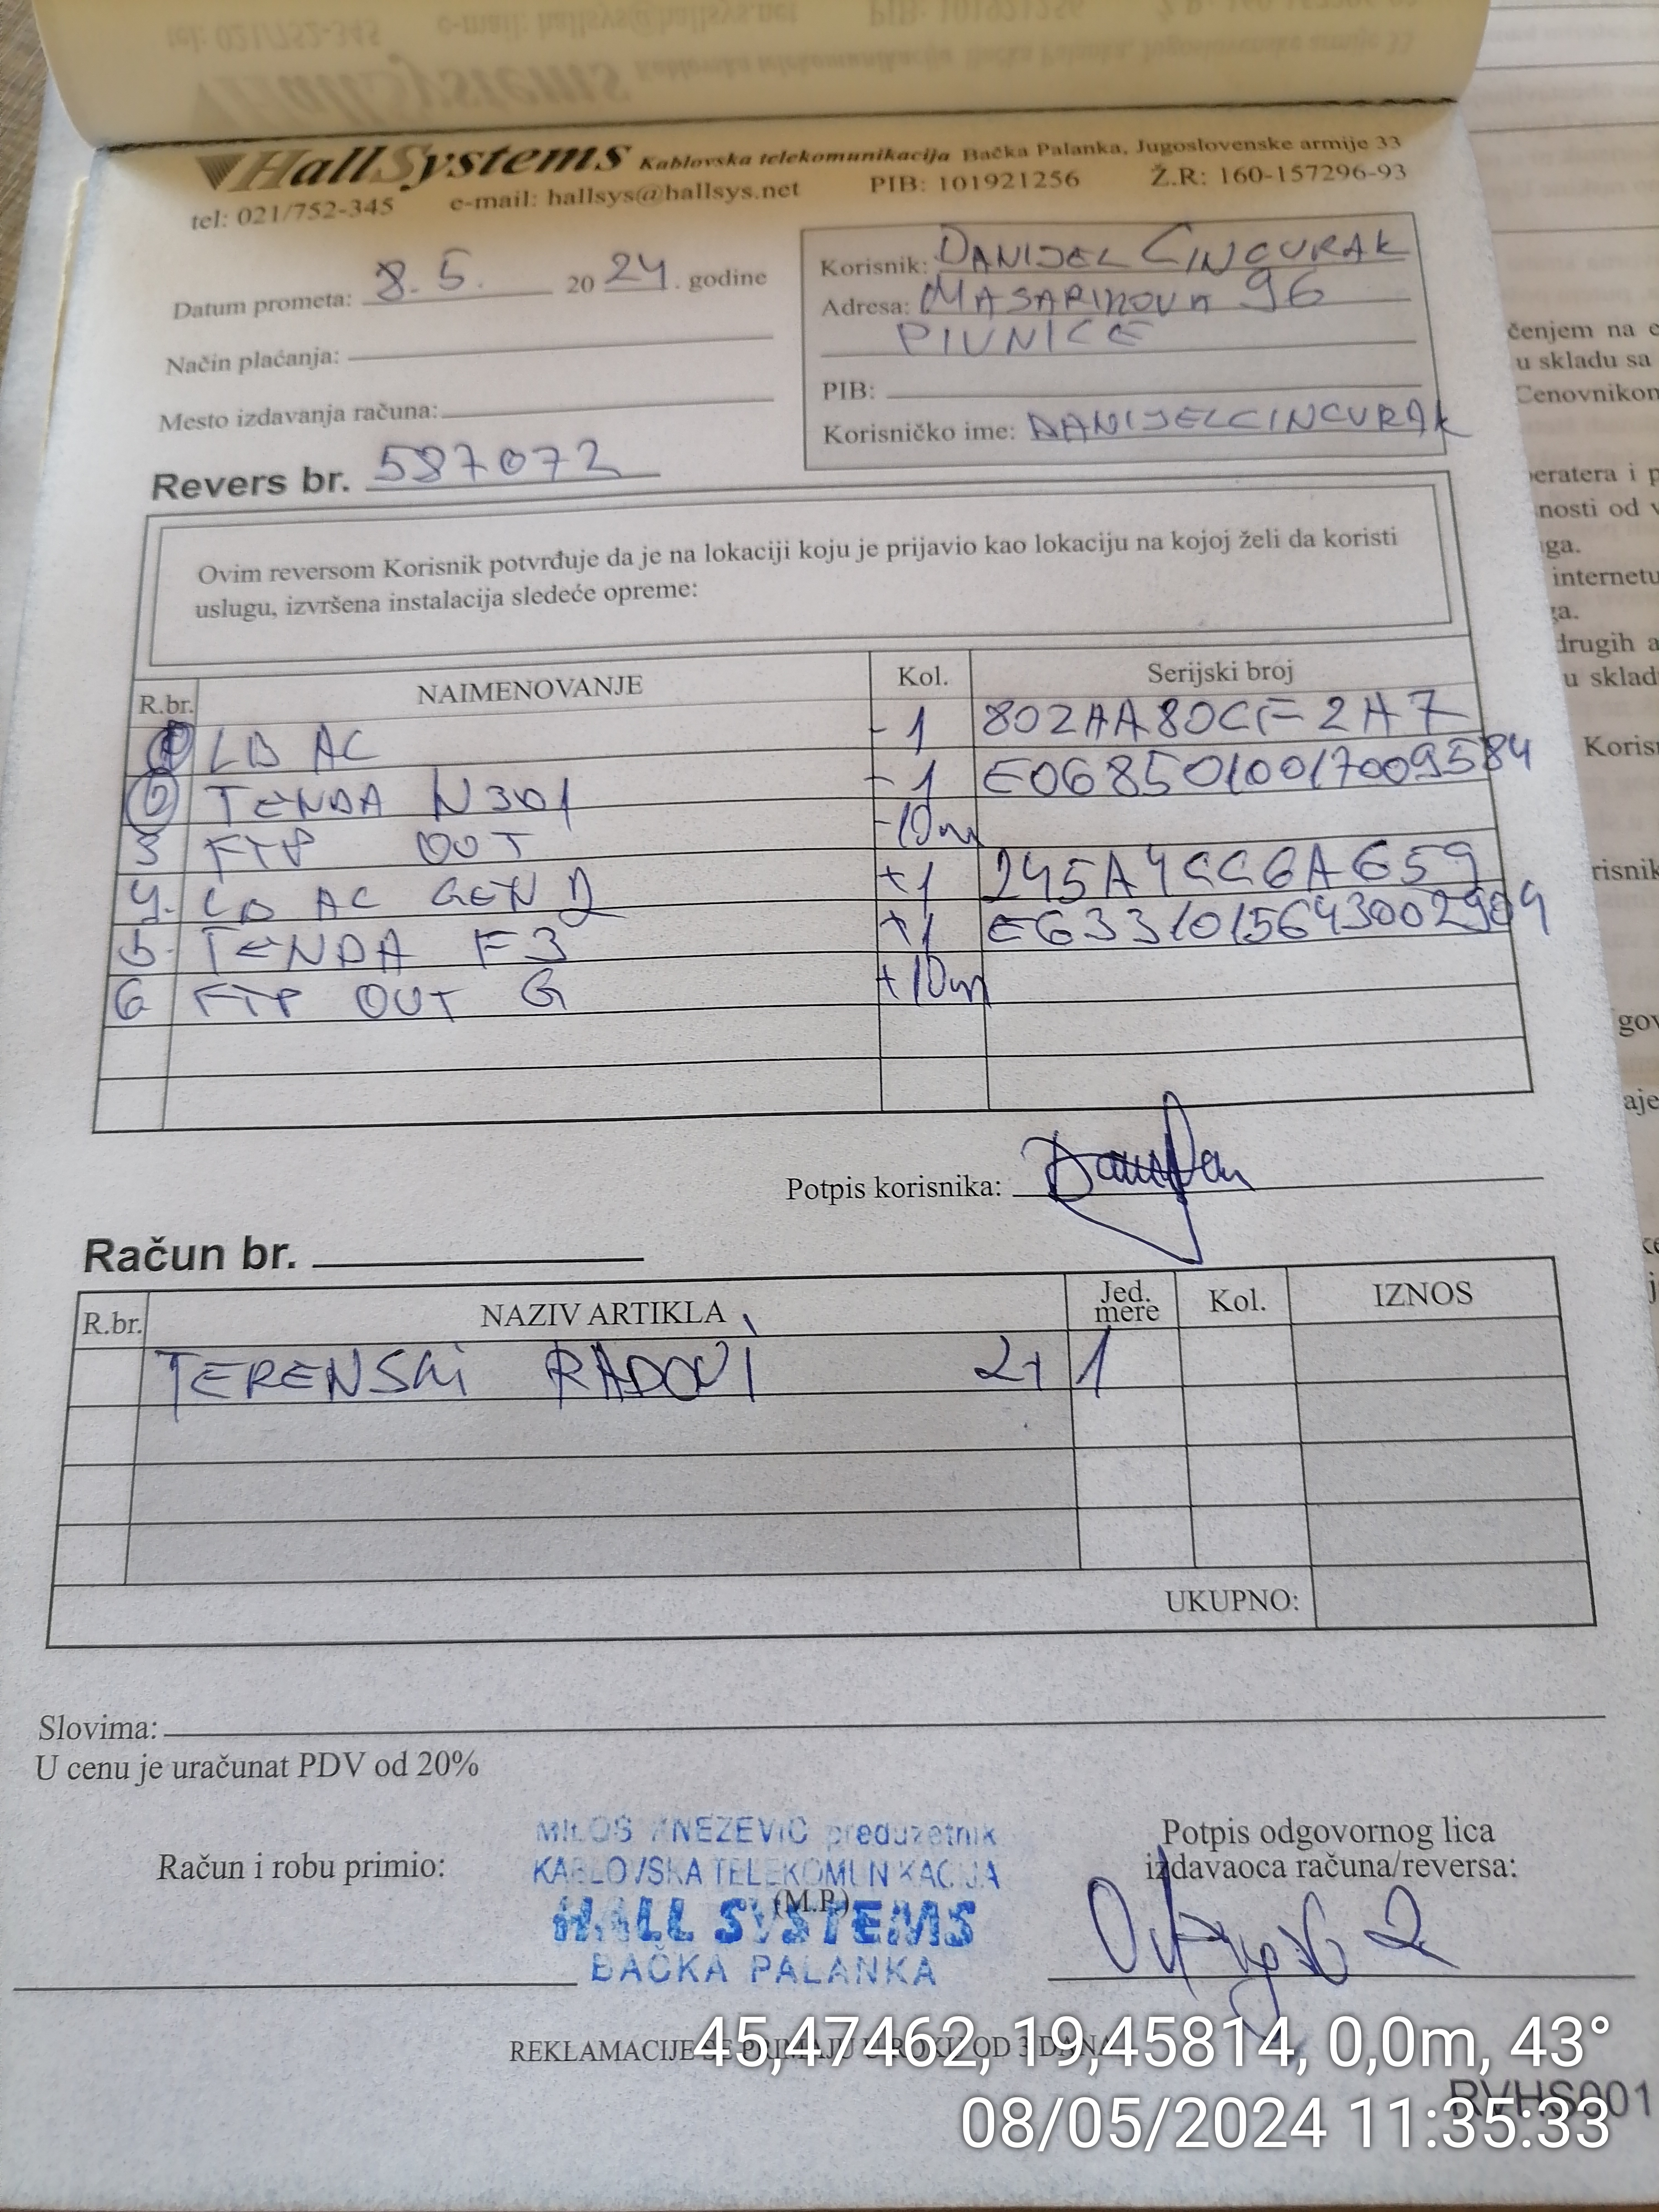 HallSystems Kablovska telekomunikacija Bačka Palanka, Jugoslovenske armije 33
tel: 021/752-345 e-mail: hallsys@hallsys.net PIB: 101921256 Ž.R: 160-157296-93
Datum prometa: 8.5. 2024. godine
Način plaćanja:
Mesto izdavanja računa:
Korisnik: DANIJEL CINCURAK
Adresa: MASARIKOVA 96
PIVNICE
PIB:
Korisničko ime: DANIJELCINCURAK
Revers br. 587072
Ovim reversom Korisnik potvrđuje da je na lokaciji koju je prijavio kao lokaciju na kojoj želi da koristi
uslugu, izvršena instalacija sledeće opreme:
R.br. NAIMENOVANJE Kol. Serijski broj
1 LB AC -1 802AA80CF2A7
2 TENDA N301 -1 E0685010017009584
3 FTP OUT -10m
4. LB AC GEN 2 +1 245A4CC6A659
5. TENDA F3 +1 E6331015643002904
6 FTP OUT G +10m
Potpis korisnika:
Račun br.
R.br. NAZIV ARTIKLA Jed. mere Kol. IZNOS
TERENSKI RADOVI 2+1
UKUPNO:
Slovima:
U cenu je uračunat PDV od 20%
Račun i robu primio:
MILOŠ KNEŽEVIĆ preduzetnik
KABLOVSKA TELEKOMUNIKACIJA
(M.P.)
HALL SYSTEMS
BAČKA PALANKA
Potpis odgovornog lica
izdavaoca računa/reversa:
REKLAMACIJE SE PRIMAJU U ROKU OD 3 DANA
45,47462, 19,45814, 0,0m, 43°
RVHS001
08/05/2024 11:35:33